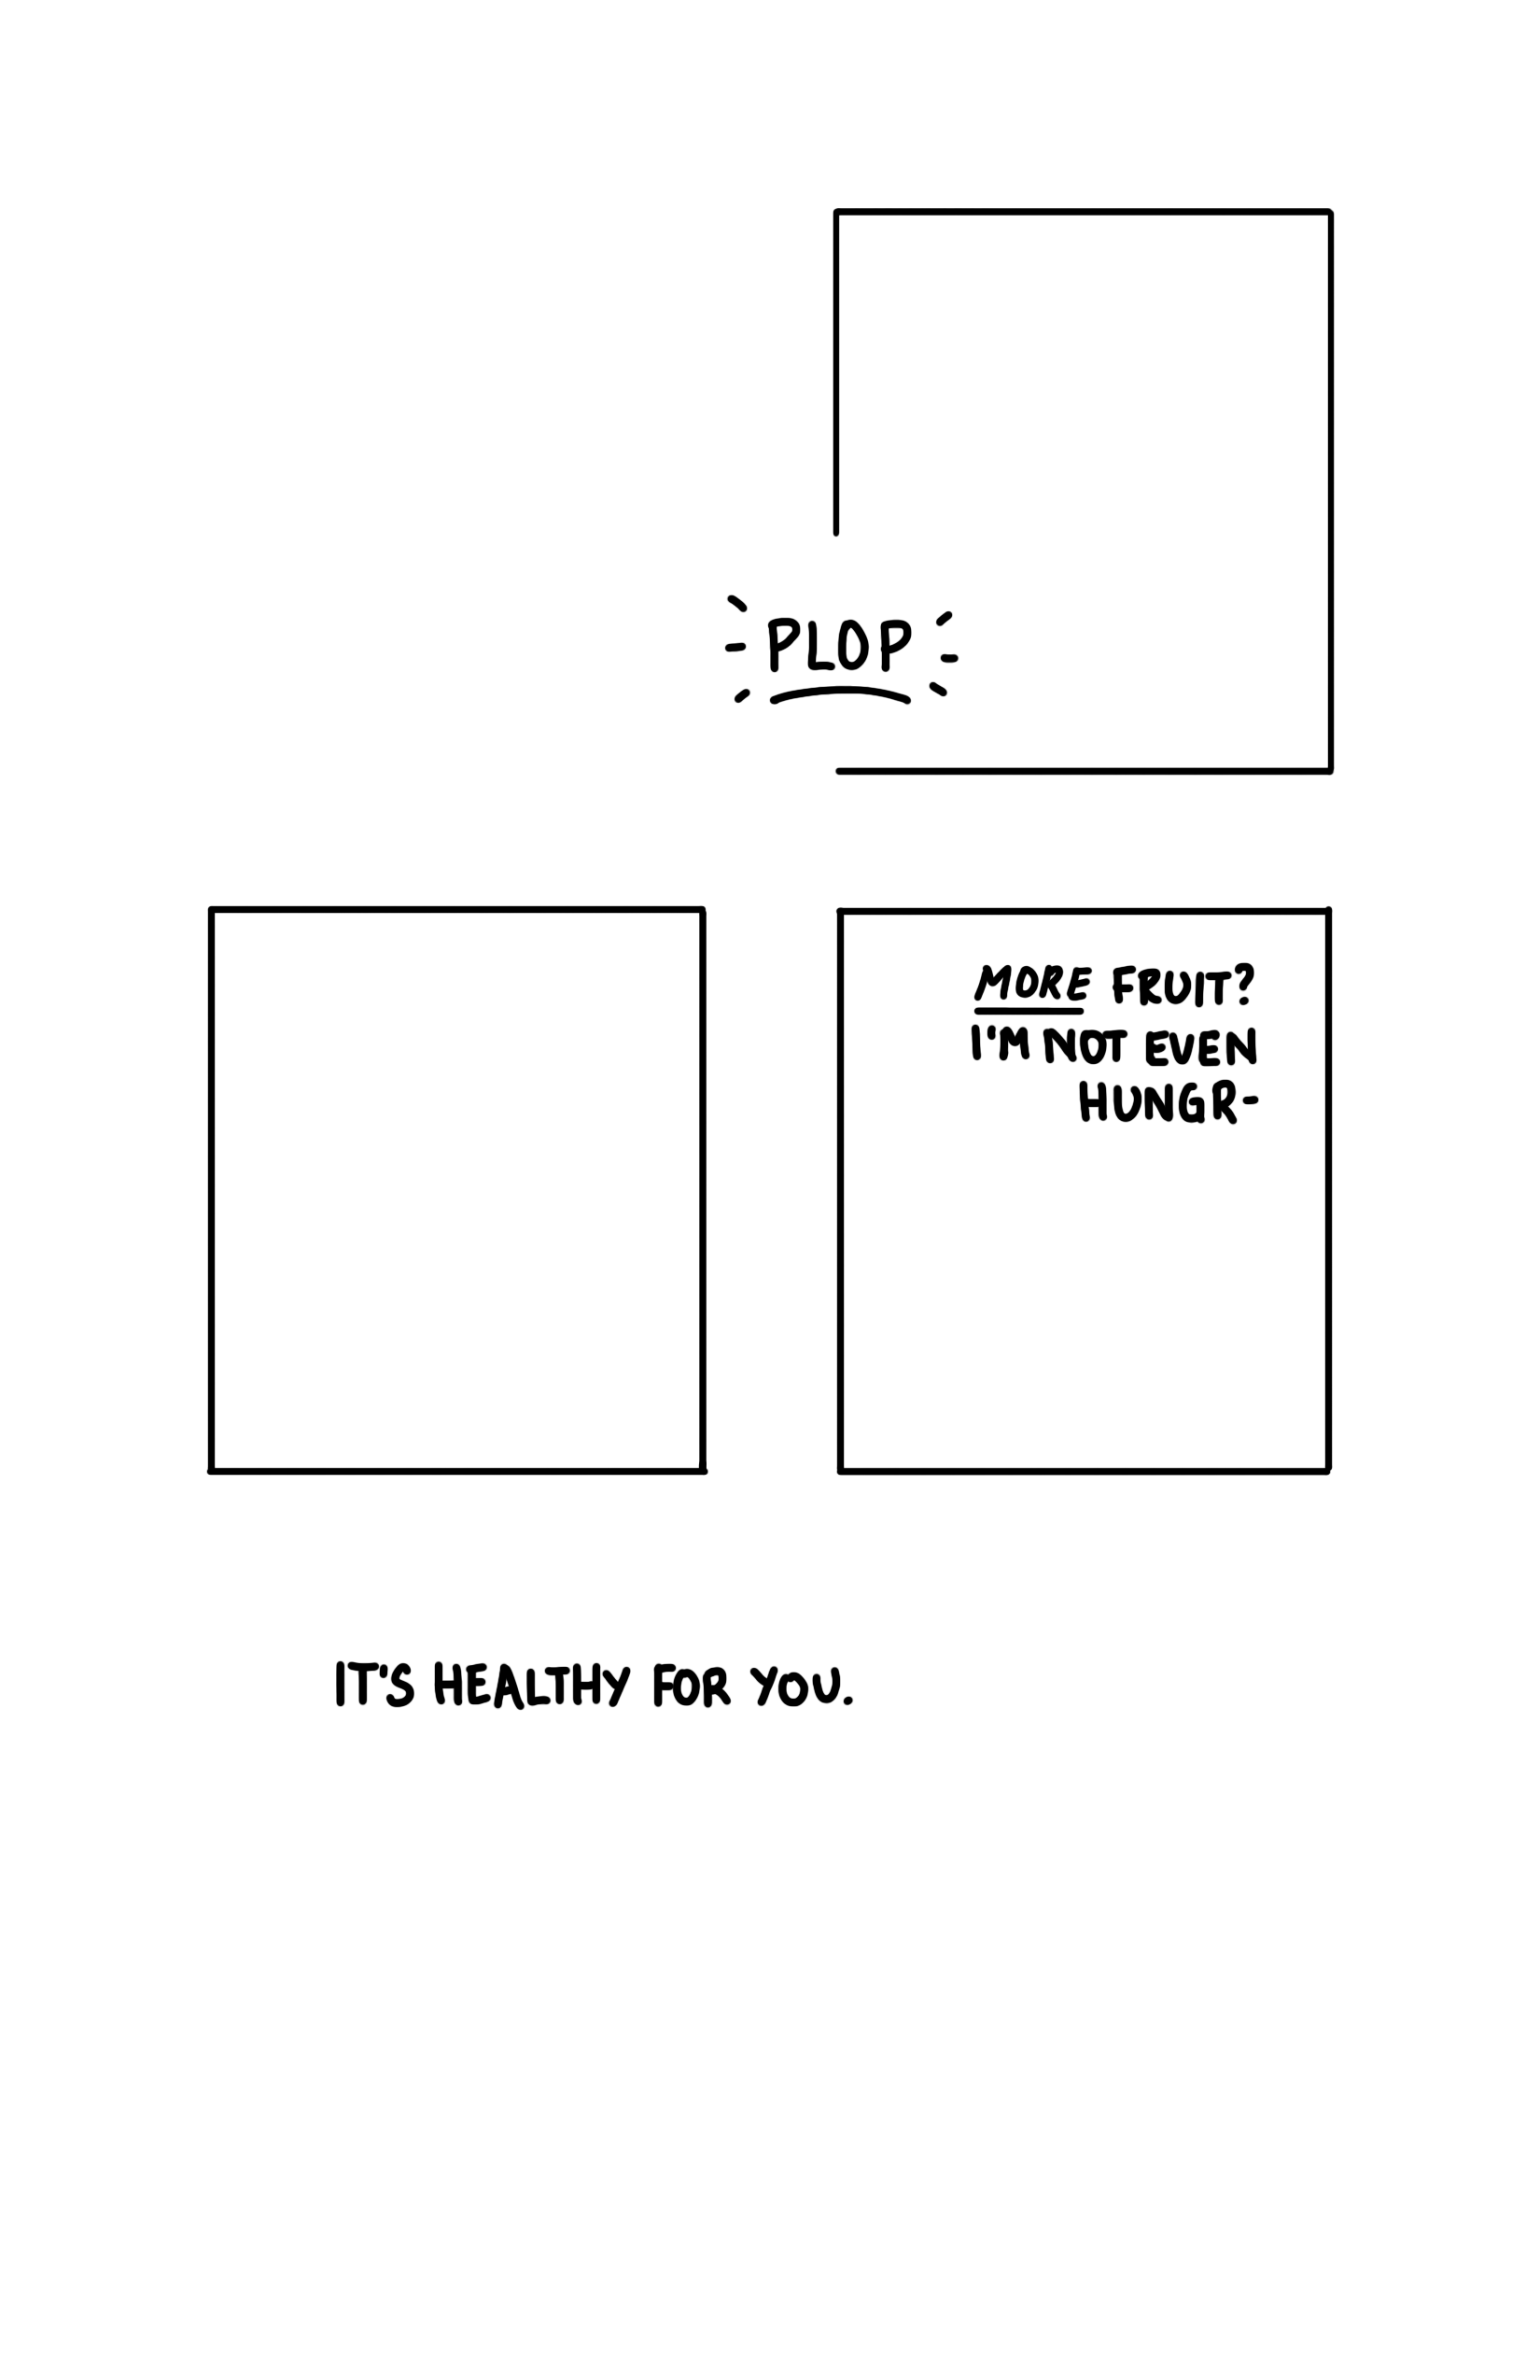 PLOP
MORE FRUIT?
I'M NOT EVEN
HUNGR-
IT'S HEALTHY FOR YOU.